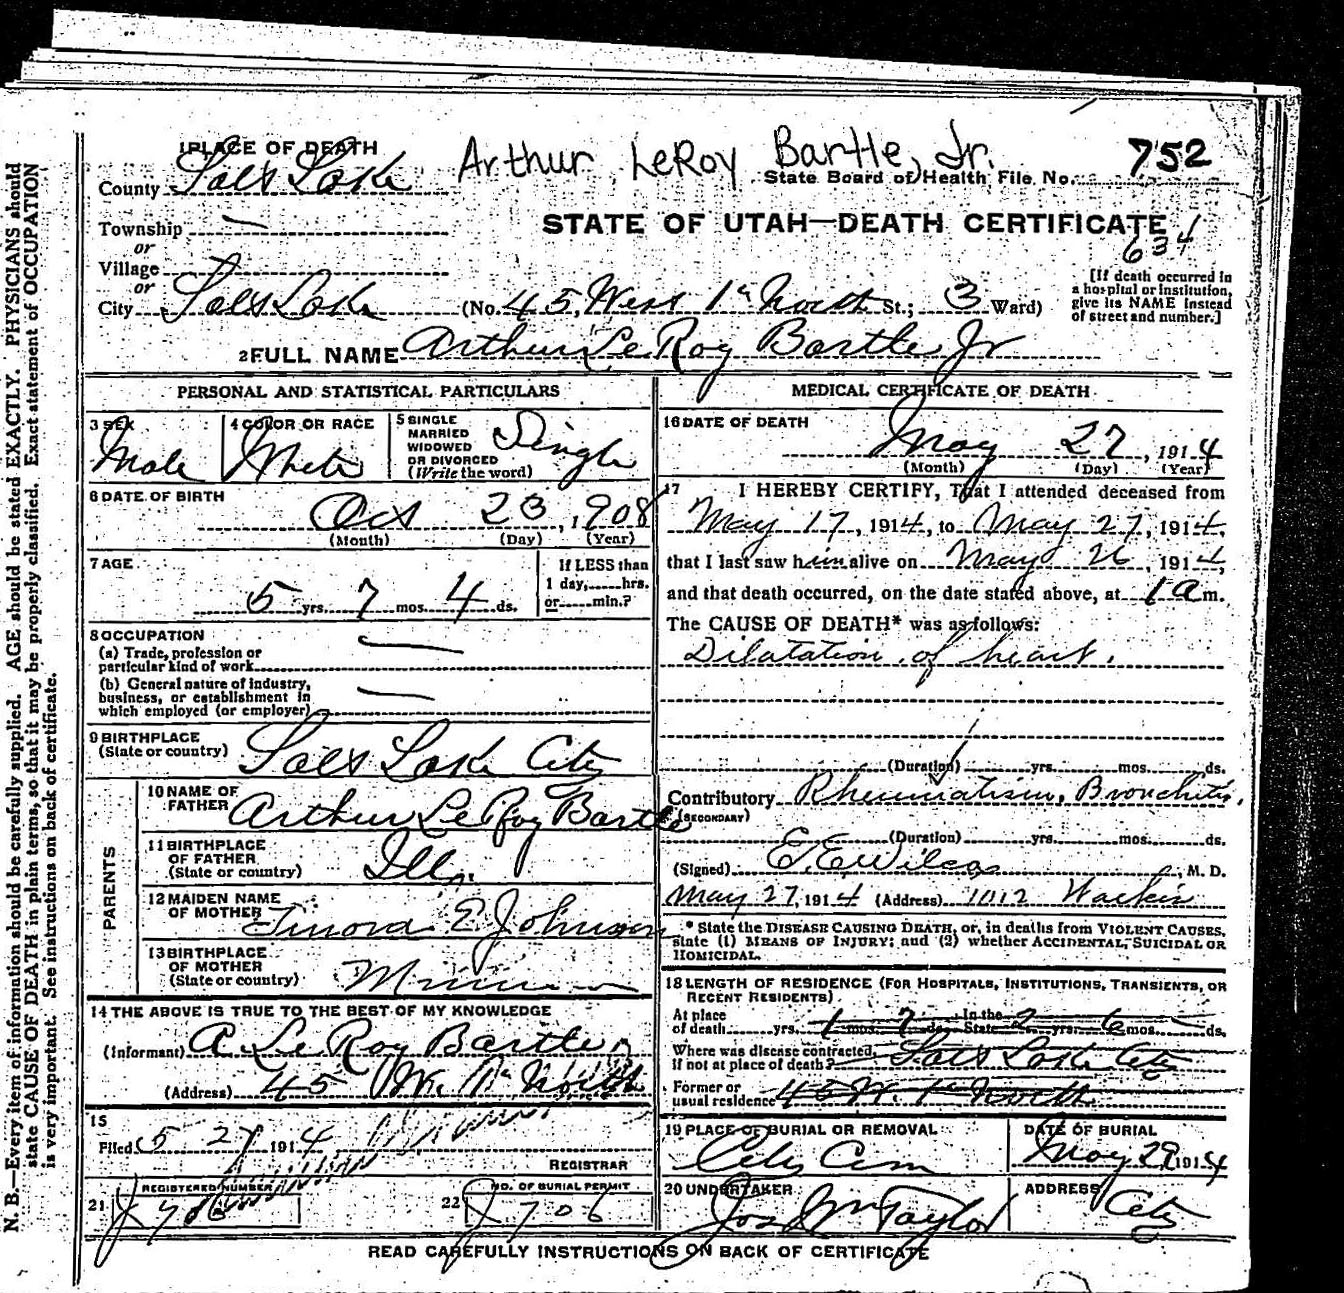 1 PLACE OF DEATH
Arthur LeRoy Bartle, Jr.
752
County Salt Lake
State Board of Health File No.
Township —
STATE OF UTAH—DEATH CERTIFICATE
634
or
Village
or
City Salt Lake (No. 45, West 1st North St.; 3 Ward)
[If death occurred in
a hospital or institution,
give its NAME instead
of street and number.]
2 FULL NAME Arthur Le Roy Bartle Jr
PERSONAL AND STATISTICAL PARTICULARS
3 SEX
Male
4 COLOR OR RACE
White
5 SINGLE
MARRIED
WIDOWED
OR DIVORCED
(Write the word)
Single
6 DATE OF BIRTH
Oct 23, 1908
(Month) (Day) (Year)
7 AGE
5 yrs. 7 mos. 4 ds.
If LESS than
1 day, hrs.
or min.?
8 OCCUPATION
(a) Trade, profession or
particular kind of work —
(b) General nature of industry,
business, or establishment in
which employed (or employer) —
9 BIRTHPLACE
(State or country)
Salt Lake City
PARENTS
10 NAME OF
FATHER
Arthur Le Roy Bartle
11 BIRTHPLACE
OF FATHER
(State or country)
Ill.
12 MAIDEN NAME
OF MOTHER
E Johnson
13 BIRTHPLACE
OF MOTHER
(State or country)
14 THE ABOVE IS TRUE TO THE BEST OF MY KNOWLEDGE
(Informant) A Le Roy Bartle
(Address) 45 W. 1st North
15
Filed 5 27 1914
REGISTRAR
REGISTERED NUMBER
21
NO. OF BURIAL PERMIT
22 J 706
MEDICAL CERTIFICATE OF DEATH
16 DATE OF DEATH
May 27, 1914
(Month) (Day) (Year)
17 I HEREBY CERTIFY, That I attended deceased from
May 17, 1914, to May 27, 1914,
that I last saw him alive on May 26, 1914,
and that death occurred, on the date stated above, at 1 a m.
The CAUSE OF DEATH* was as follows:
Dilatation of heart.
(Duration) yrs. mos. ds.
Contributory Rheumatism, Bronchitis,
(SECONDARY)
(Duration) yrs. mos. ds.
(Signed) E. E. Wilcox, M. D.
May 27, 1914 (Address) 1012
* State the DISEASE CAUSING DEATH, or, in deaths from VIOLENT CAUSES,
state (1) MEANS OF INJURY; and (2) whether ACCIDENTAL, SUICIDAL OR
HOMICIDAL.
18 LENGTH OF RESIDENCE (FOR HOSPITALS, INSTITUTIONS, TRANSIENTS, OR
RECENT RESIDENTS)
At place
of death yrs. 1 mos. 7 ds. In the
State 2 yrs. 6 mos. ds.
Where was disease contracted,
if not at place of death? Salt Lake City
Former or
usual residence 45 W. 1st North
19 PLACE OF BURIAL OR REMOVAL
City Cem
DATE OF BURIAL
May 29 1914
20 UNDERTAKER
Jos Wm Taylor
ADDRESS
City
READ CAREFULLY INSTRUCTIONS ON BACK OF CERTIFICATE
N. B.—Every item of information should be carefully supplied. AGE should be stated EXACTLY. PHYSICIANS should
state CAUSE OF DEATH in plain terms, so that it may be properly classified. Exact statement of OCCUPATION
is very important. See instructions on back of certificate.